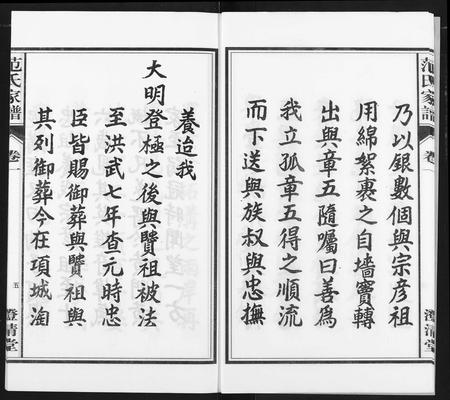 范氏家譜
卷一
乃以銀數個與宗彥祖
用綿絮裹之自墻竇轉
出與章五隨囑曰善為
我立孤章五得之順流
而下送與族叔與忠撫
澄清堂
養迨我
大明登極之後與贒祖被法
至洪武七年查元時忠
臣皆賜御葬與贒祖與
其列御葬今在項城淘
范氏家譜
卷一
五
澄清堂